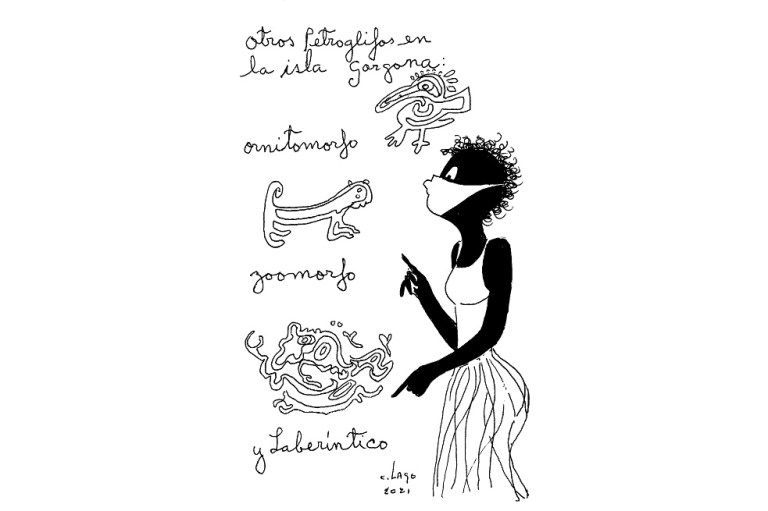 otros Petroglifos en
la isla Gorgona:
ornitomorfo
zoomorfo
y Laberíntico
c. LAGO
2021